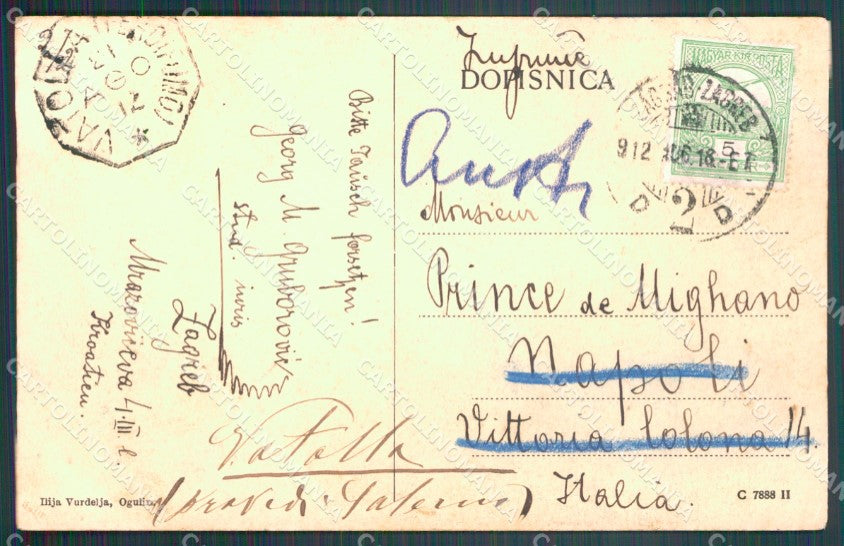 Imprimé
DOPISNICA
Bitte Tausch forsetzen!
Georg M Gruborović
stud. iuris
Zagreb
Mrazovićeva 4.III. l.
Kroatien.
Monsieur
Prince de Mighano
Napoli
Vittoria Colona 14.
Italia.
Vatolla
(prov di Salerno)
Ilija Vurdelja, Ogulin.
C 7888 II
MAGYAR KIR. POSTA
5
ZÁGRÁB ZAGREB
912 AUG.18
D 2 D
VATOLLA
CARTOLINOMANIA